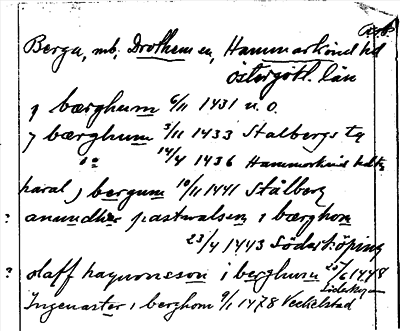 Berga, mb, Drothem sn, Hammarkind hd
Östergötl. län
j bærghum 6/11 1431 u. o.
j bærghum 3/11 1433 Stålbergs tg
io 14/4 1436 Hammarkind hdtg
haral j bergum 10/11 1441 Stålberg
? anundher pastwalsen i bærghom
23/4 1443 Söderköping
? olaff haquonsson i berghum 1448
Ingemaster i berghom 9/1 1478 Veckelstad